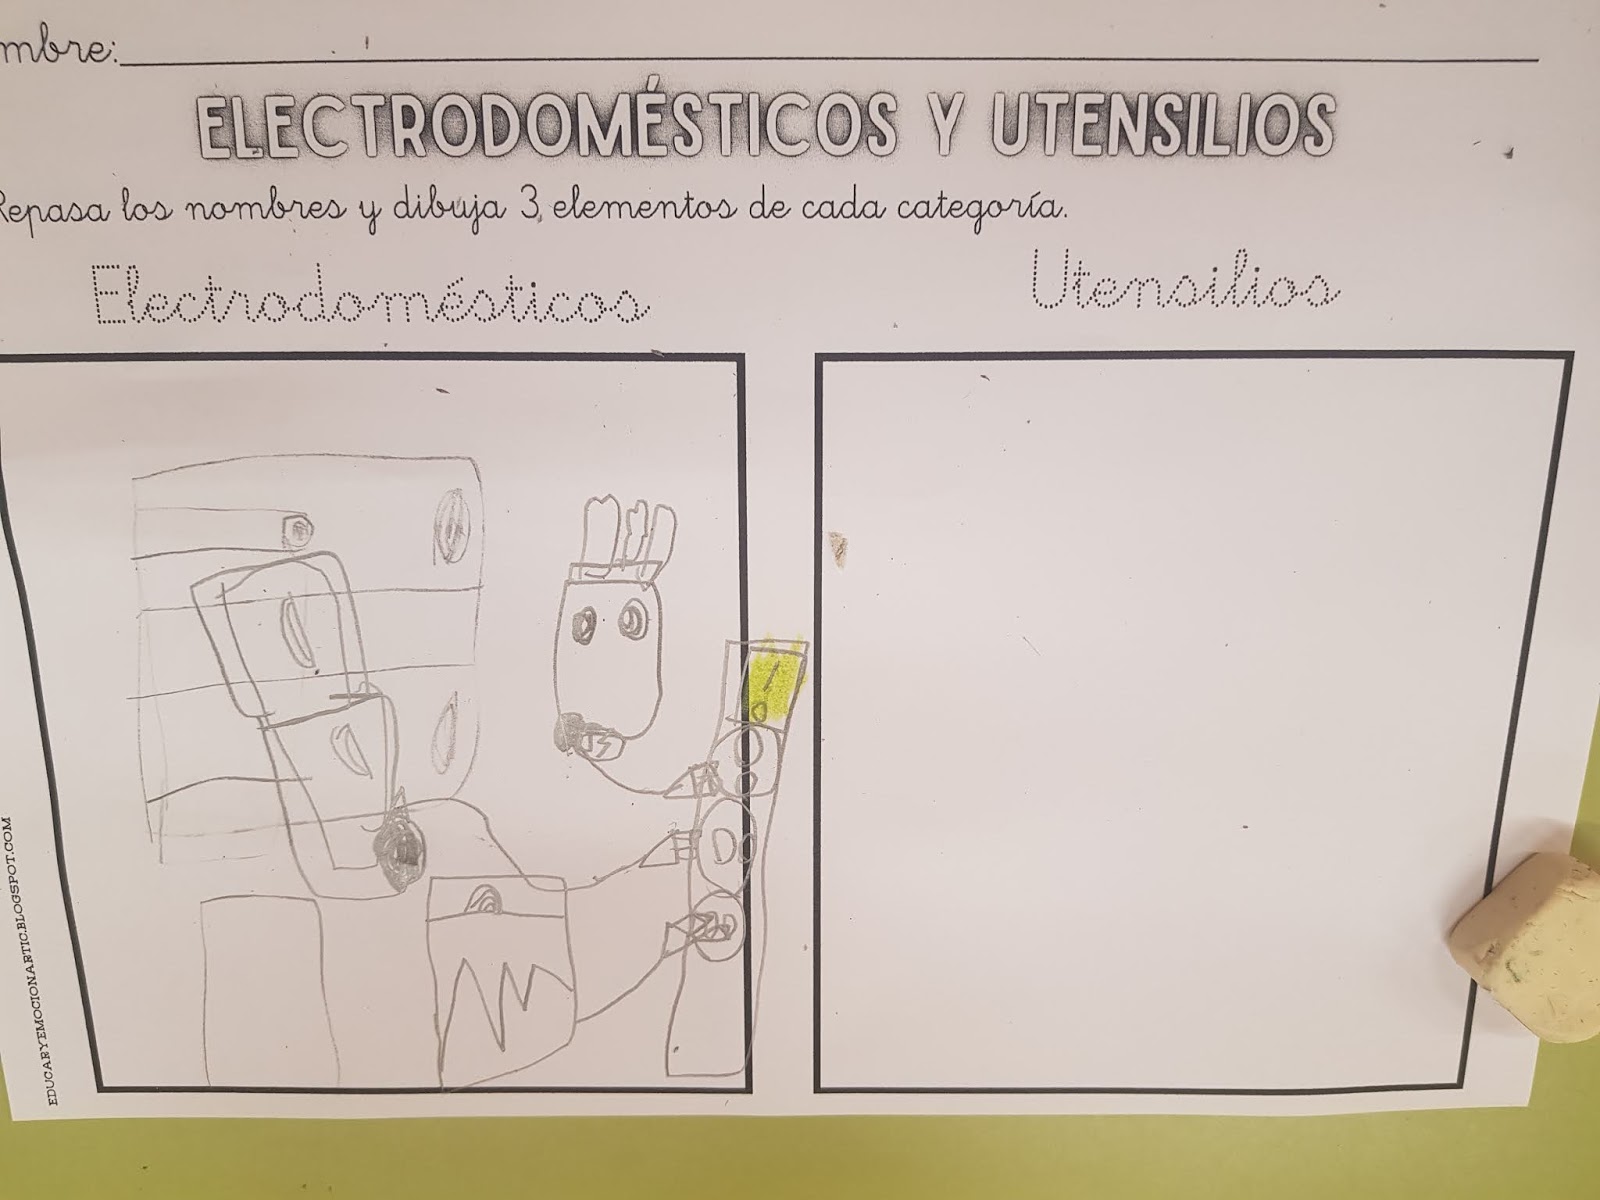 mbre:
ELECTRODOMÉSTICOS Y UTENSILIOS
Repasa los nombres y dibuja 3 elementos de cada categoría.
Electrodomésticos
Utensilios
EDUCARYEMOCIONARTIC.BLOGSPOT.COM